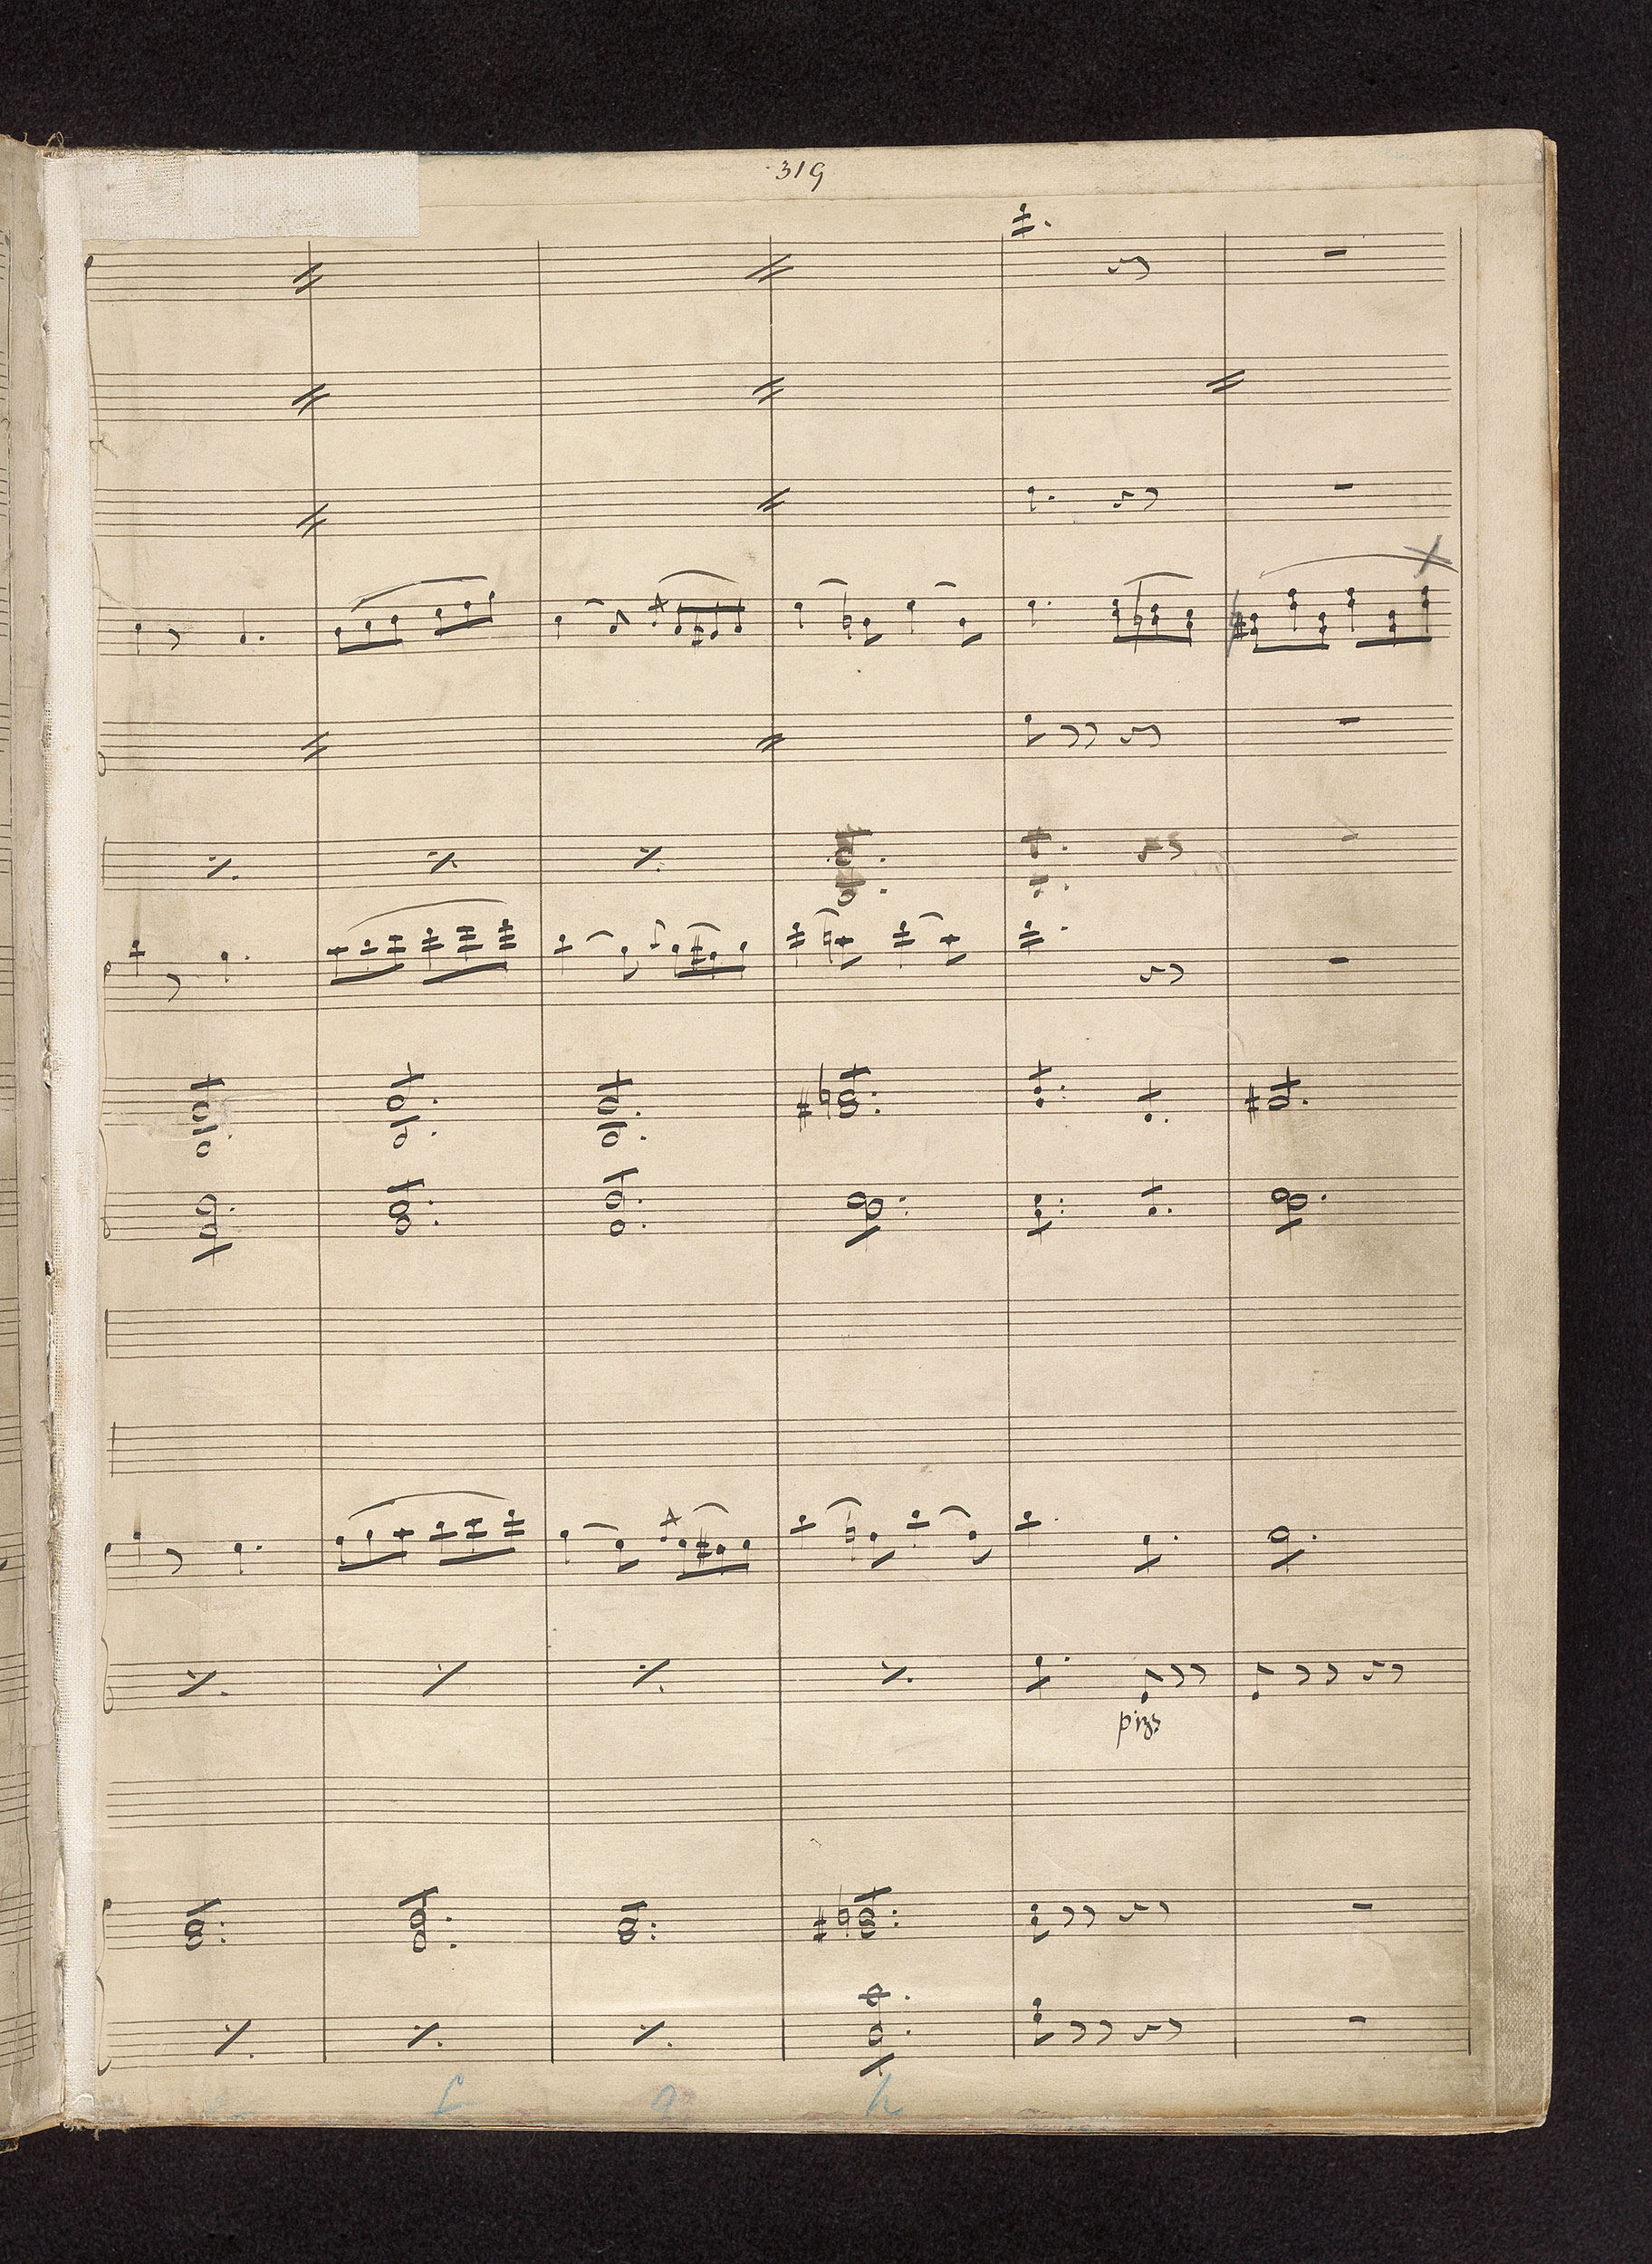 319
pizz
f g h